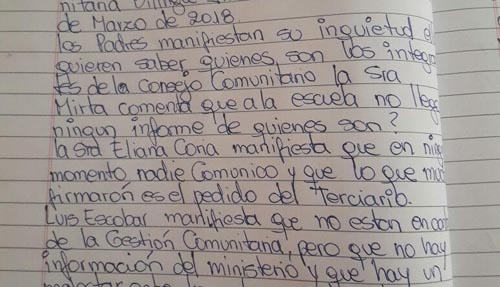 nitaria
de Marzo de 2018.
los Padres manifiestan su inquietud el
quieren saber quienes son los integra
tes de la Consejo Comunitano la Sra
Mirta comenta que a la escuela no llega
ningun informe de quienes son?
la Sra Eliana Cona manifiesta que en ning
momento nadie Comunico y que lo que muc
firmarón es el pedido del terciario.
Luis Escobar manifiesta que no estan en con
de la Gestión Comunitana, pero que no hay
información del ministerio y que hay un
malestar